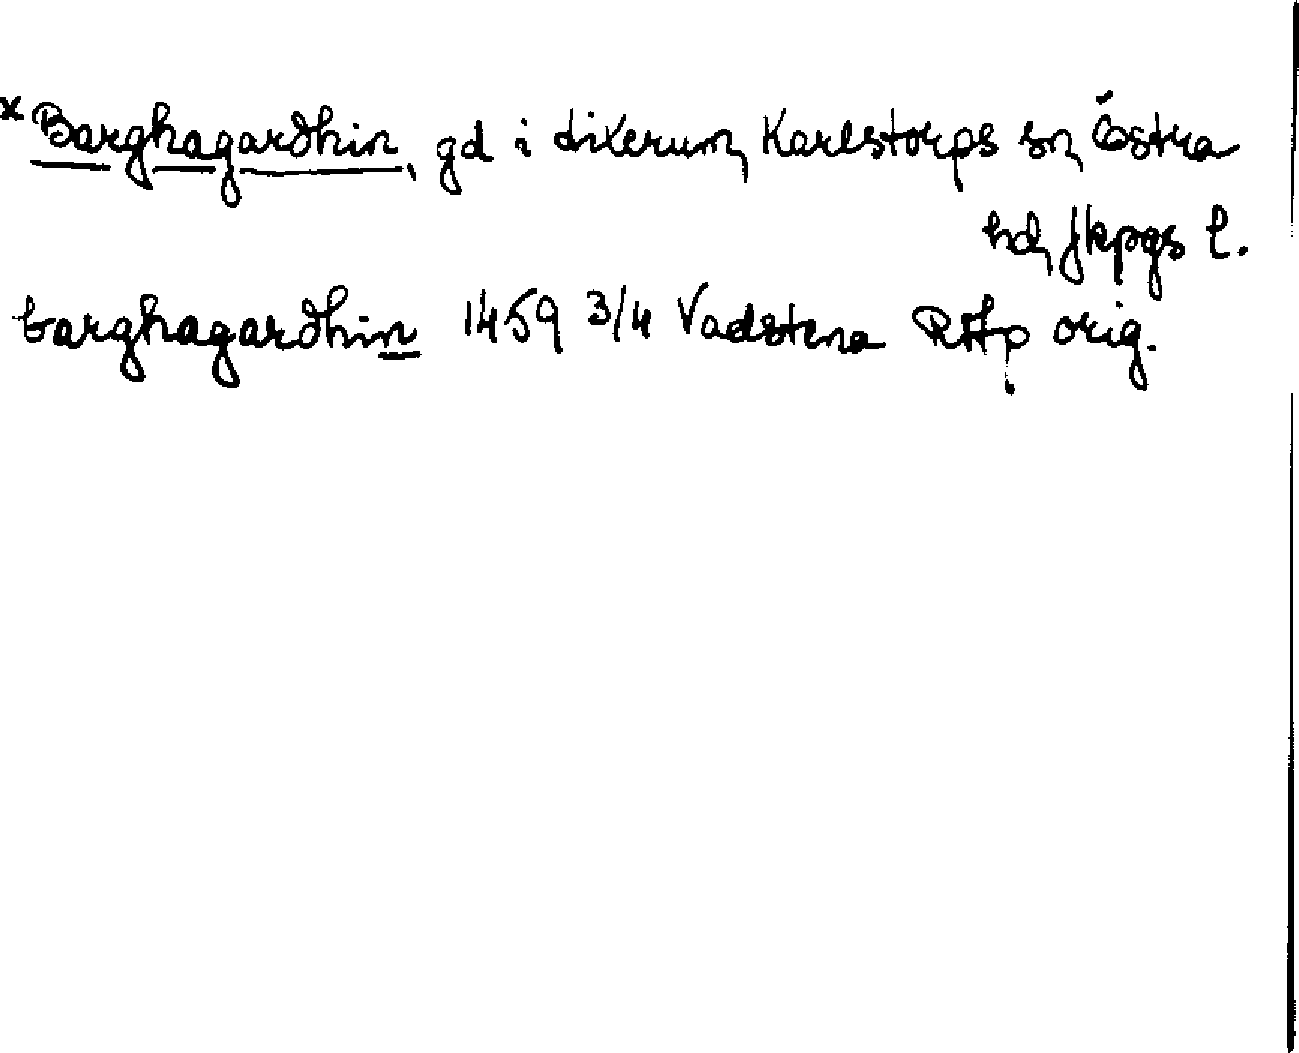 x Barghagardhin, gd i dixerum, Karlstorps sn, Östra
hd, Jkpgs l.
barghagardhin 1459 3/4 Vadstena RAp orig.